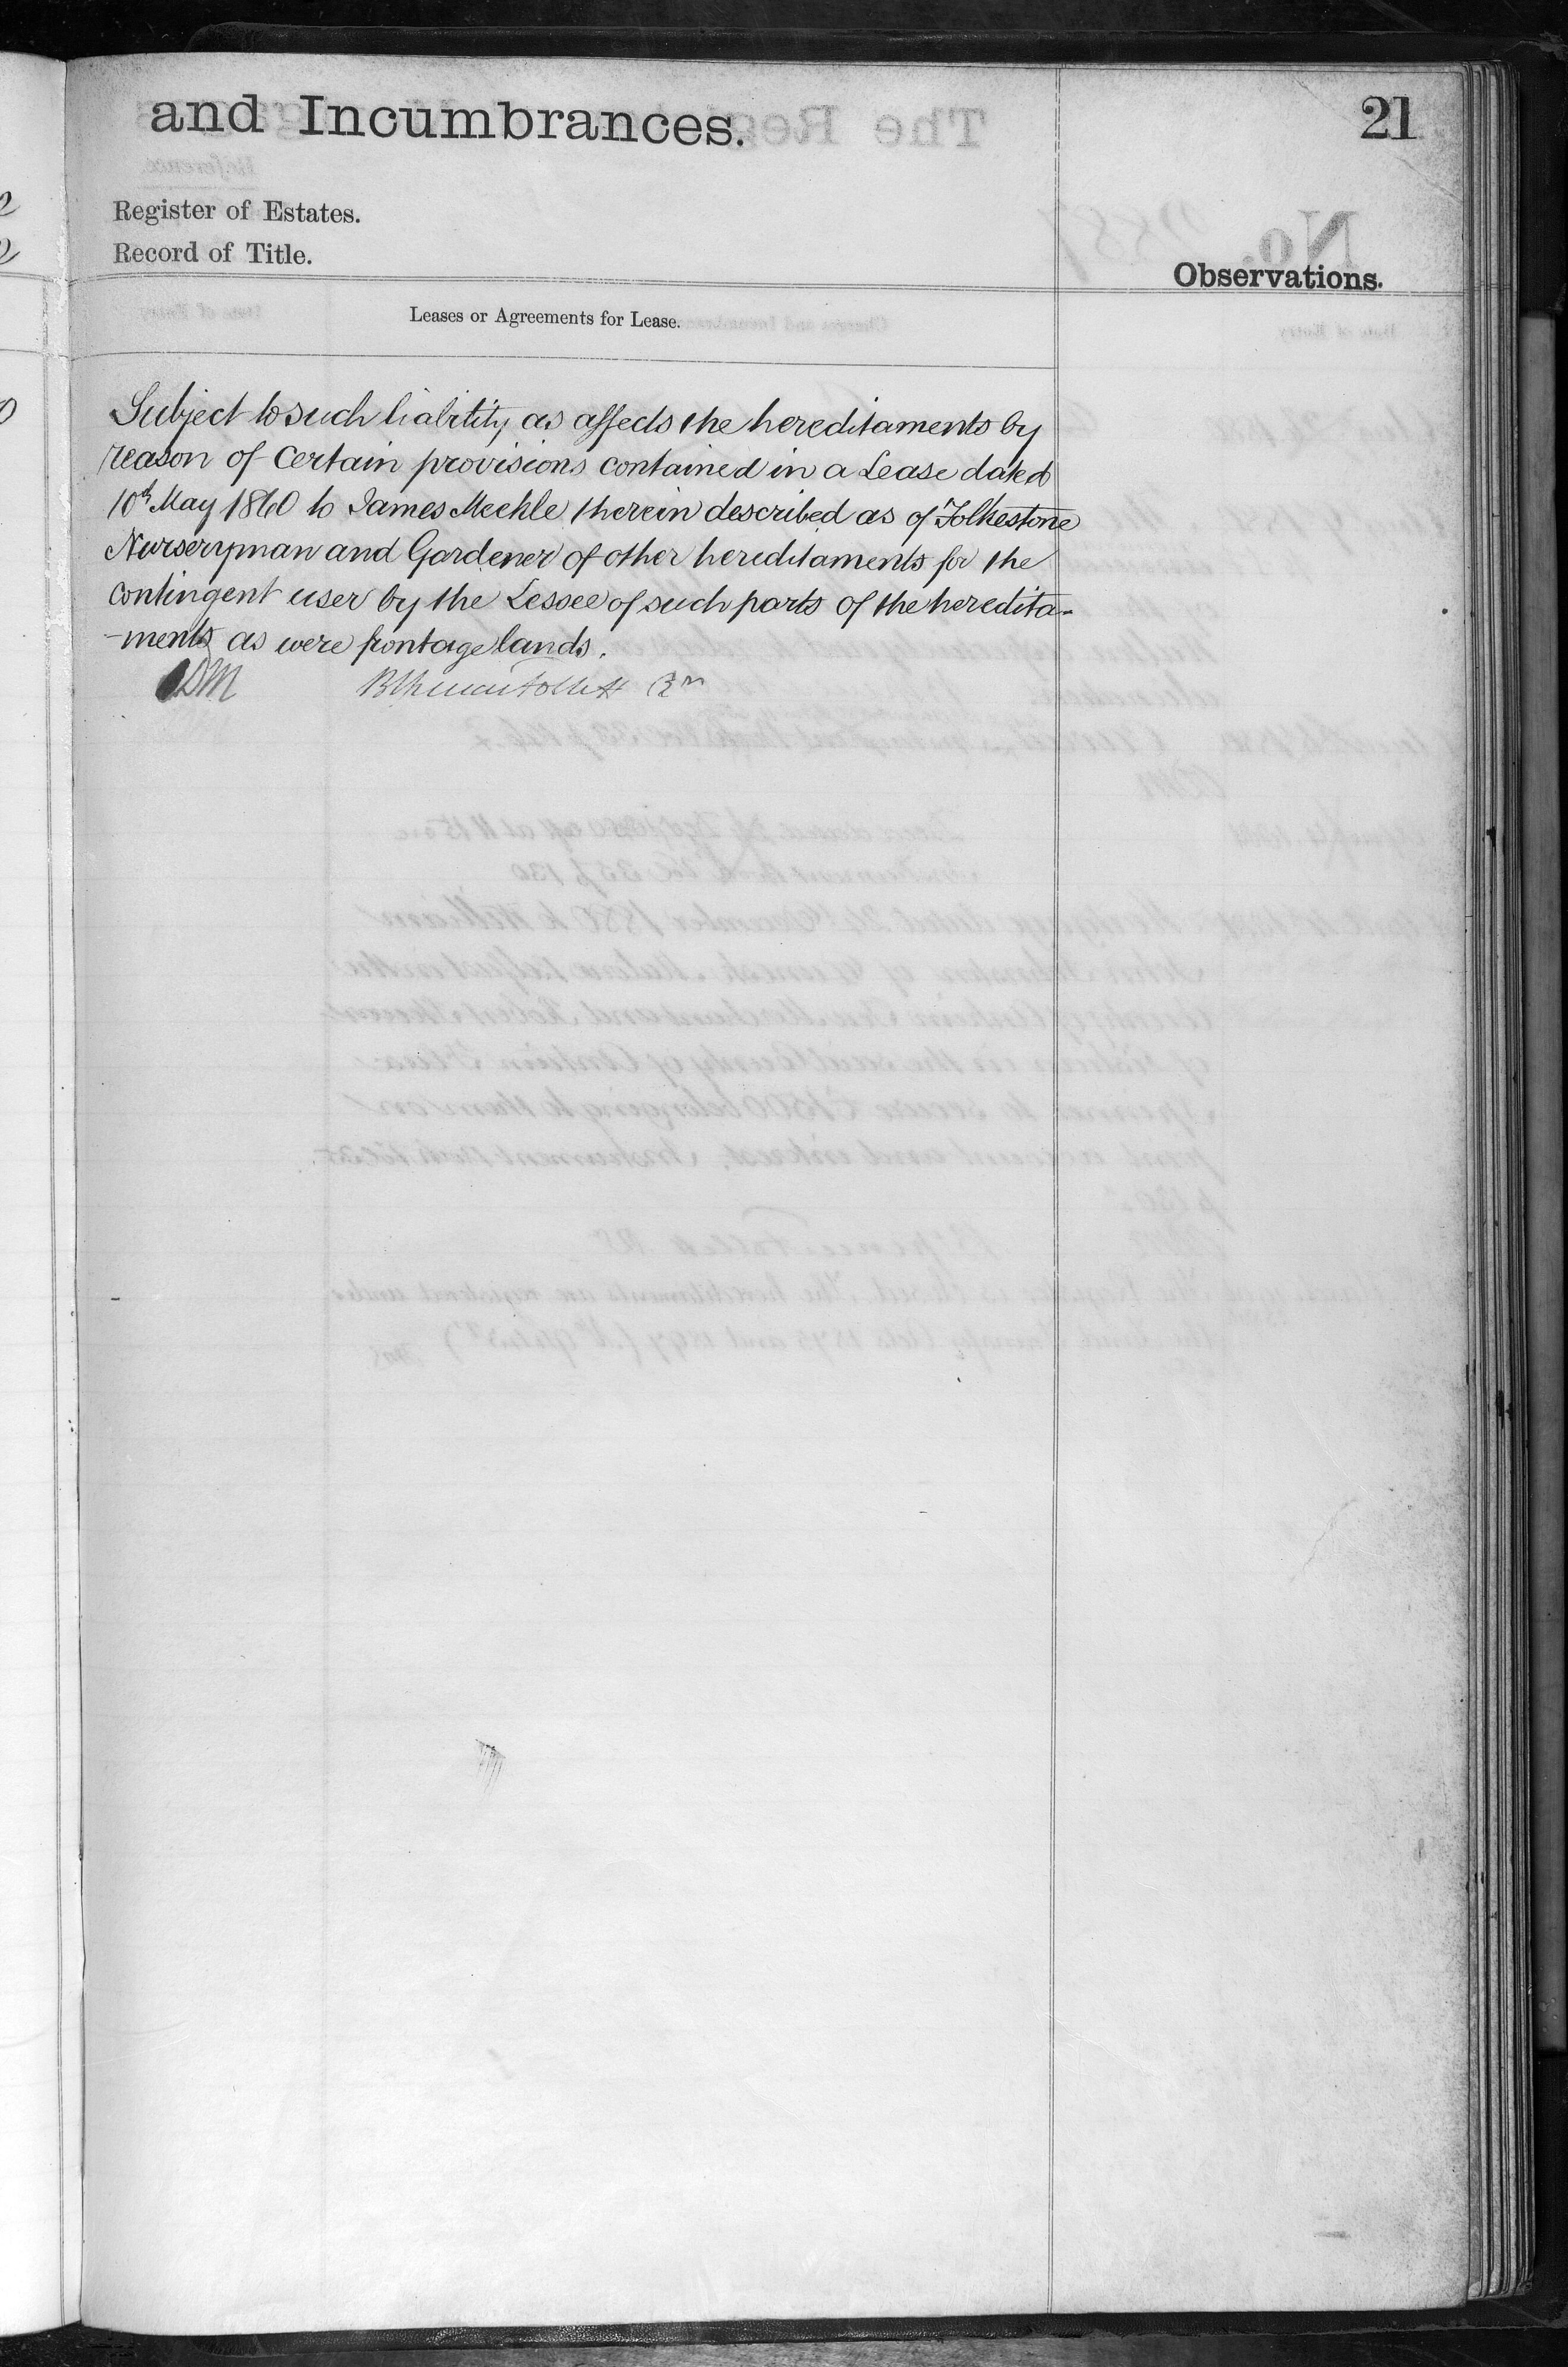 and Incumbrances.
21
Register of Estates.
Record of Title.
Observations.
Leases or Agreements for Lease.
Subject to such liability as affects the hereditaments by
reason of certain provisions contained in a Lease dated
10th May 1860 to James Meehle therein described as of Folkestone
Nurseryman and Gardener of other hereditaments for the
contingent user by the Lessee of such parts of the heredita-
-ments as were frontage lands.
DM